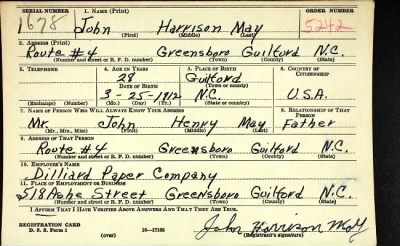 SERIAL NUMBER 1. NAME (Print) ORDER NUMBER
1678 John Harrison May 5242
(First) (Middle) (Last)
2. ADDRESS (Print)
Route #4 Greensboro Guilford N.C.
(Number and street or R. F. D. number) (Town) (County) (State)
3. TELEPHONE 4. AGE IN YEARS 5. PLACE OF BIRTH 6. COUNTRY OF CITIZENSHIP
28 Guilford
DATE OF BIRTH (Town or county)
3-25-1912 N.C. U.S.A.
(Exchange) (Number) (Mo.) (Day) (Yr.) (State or country)
7. NAME OF PERSON WHO WILL ALWAYS KNOW YOUR ADDRESS 8. RELATIONSHIP OF THAT PERSON
Mr. John Henry May Father
(Mr., Mrs., Miss) (First) (Middle) (Last)
9. ADDRESS OF THAT PERSON
Route #4 Greensboro Guilford N.C.
(Number and street or R. F. D. number) (Town) (County) (State)
10. EMPLOYER'S NAME
Dilliard Paper Company
11. PLACE OF EMPLOYMENT OR BUSINESS
518 Ashe Street Greensboro Guilford N.C.
(Number and street or R. F. D. number) (Town) (County) (State)
I AFFIRM THAT I HAVE VERIFIED ABOVE ANSWERS AND THAT THEY ARE TRUE.
REGISTRATION CARD
D. S. S. Form 1 (over) 16-17105
John Harrison May
(Registrant's signature)